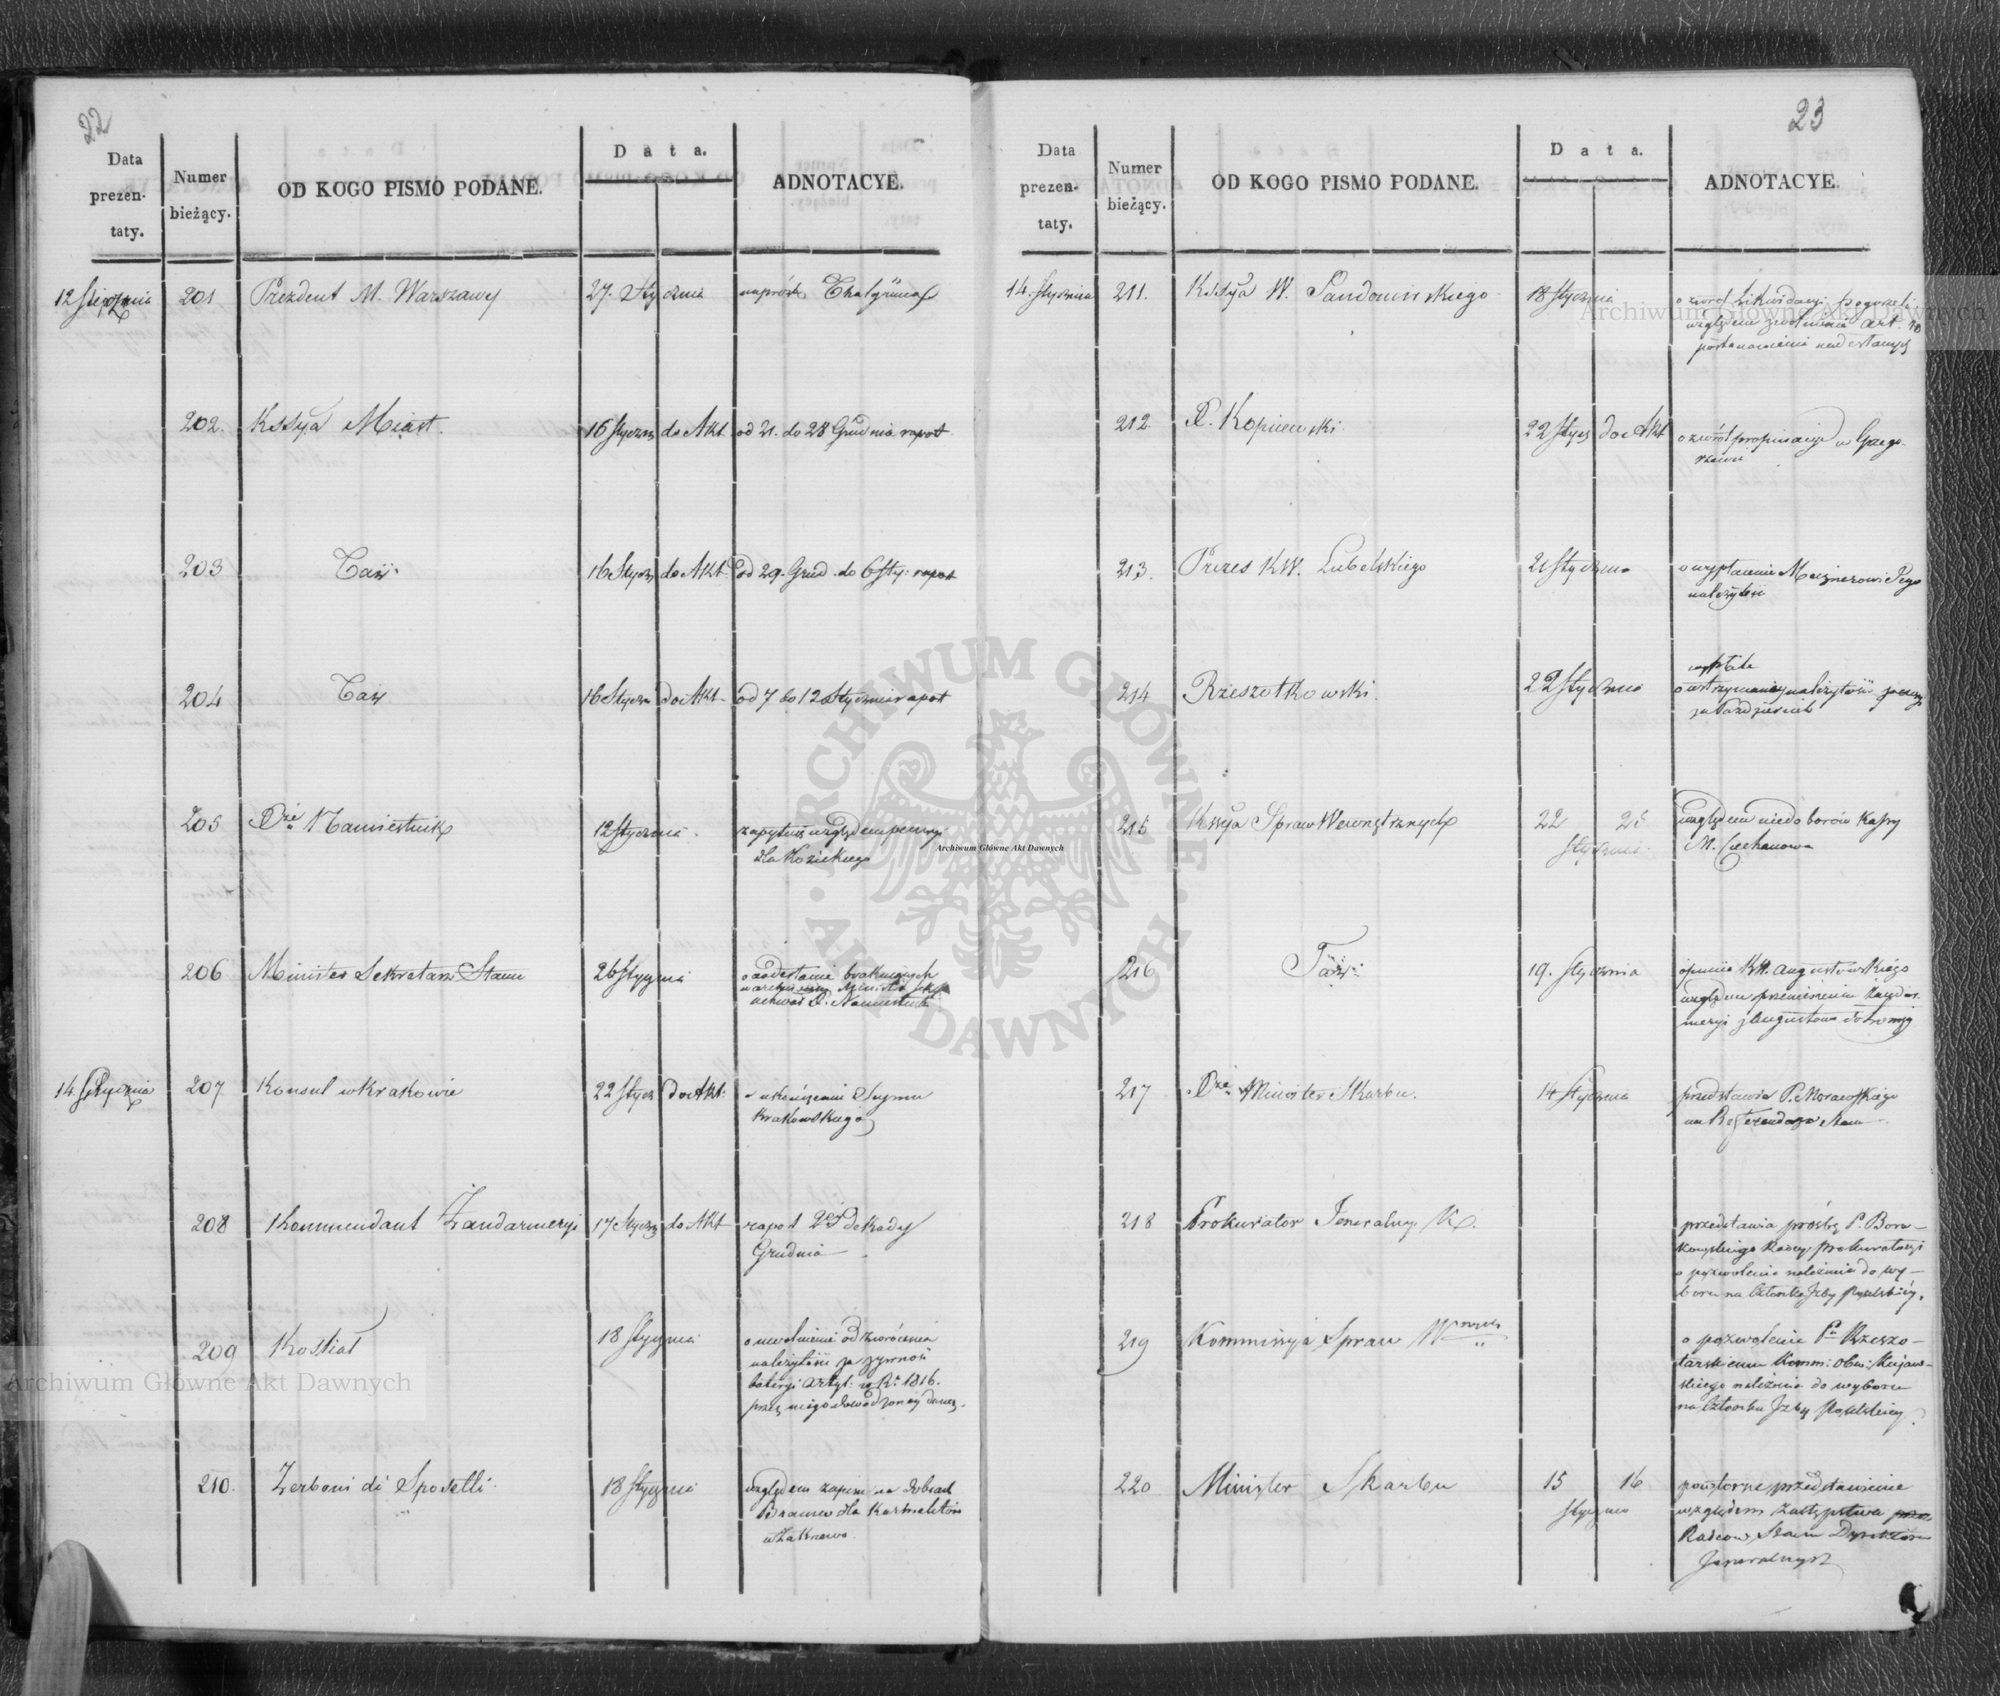 22
Data
prezen-
taty.
Numer
bieżący.
OD KOGO PISMO PODANE.
Data.
ADNOTACYE.
12 Stycznia 201 Prezdent M. Warszawy 27. Stycznia na prośbę
202. Kssya Miast. 16 Stycznia do Akt. od 21. do 28 Grudnia raport
203 Taż. 16 Stycz do Akt. od 29. Grud. do 6 Sty: raport
204 Taż 16 Stycz do Akt. od 7 do 12 Stycznia raport
205 Xże Namiestnik 12 Stycznia. zapytuie względem pensyi
dla Kozickiego
206 Minister Sekretarz Stanu 26 Stycznia o nadesłanie brakuiących
uchwał X. Namiestnika
14 Stycznia 207 Konsul w Krakowie 22 Stycz do Akt: o ukończeniu Seymu
Krakowskiego
208 Kommendant Żandarmeryi 17 Stycz do Akt raport 2iey dekady
Grudnia
209 Kostial 18 Stycznia o uwolnienie od zwrócenia
należytości za żywność
bateryi artyl: w R. 1816.
przez niego dowodzoney daney.
210. Zerboni di Sposetti 18 Stycznia względem zapisu na dobrach
dla Karmelitów
23
Data
prezen-
taty.
Numer
bieżący.
OD KOGO PISMO PODANE.
Data.
ADNOTACYE.
14. Stycznia 211. Kssya W. Sandomirskiego 18 Stycznia o zwrot likwidacyi pogorzeli
względem Art. 10
postanowienia nadesłanych
212. P. Kopiiewski. 22 Stycz do Akt o zwrót propinacyi w Grzego-
rzewie
213. Prezes KW. Lubelskiego 21 Stycznia o wypłacenie Meiznerowi Jego
należytości
214 Rzeszotkowski. 22 Stycznia wypłatę
o wstrzymaniey należytości
za Październik
215 Kssya Spraw Wewnętrznych 22 25
Stycznia względem niedoborów Kassy
M. Ciechanowa
216 Taż. 19. Stycznia opinia KW. Augustowskiego
względem przeniesienia Żandar-
meryi z Augustowa do Łomży
217 Xże Minister Skarbu. 14 Stycznia przedstawia P. Morawskiego
na Referendarza Stanu
218 Prokurator Jeneralny K. przedstawia prośbę P. Boro-
Radcy Prokuratoryi
o pozwolenie należenia do wy-
boru na Członka Izby Poselskiéy.
219 Kommissya Spraw Wnętrznych o pozwolenie Pu Rzeszo-
tarskiemu Komm: Obw: Kujaw-
skiego należenia do wyboru
na Członka Izby Poselskiey
220 Minister Skarbu 15 16
Stycznia powtorne przedstawienie
względem Zastępstwa przez
Radców Stanu Dyrektorów
Jeneralnych
Archiwum Główne Akt Dawnych
Archiwum Główne Akt Dawnych
Archiwum Główne Akt Dawnych
ARCHIWUM GŁÓWNE AKT DAWNYCH